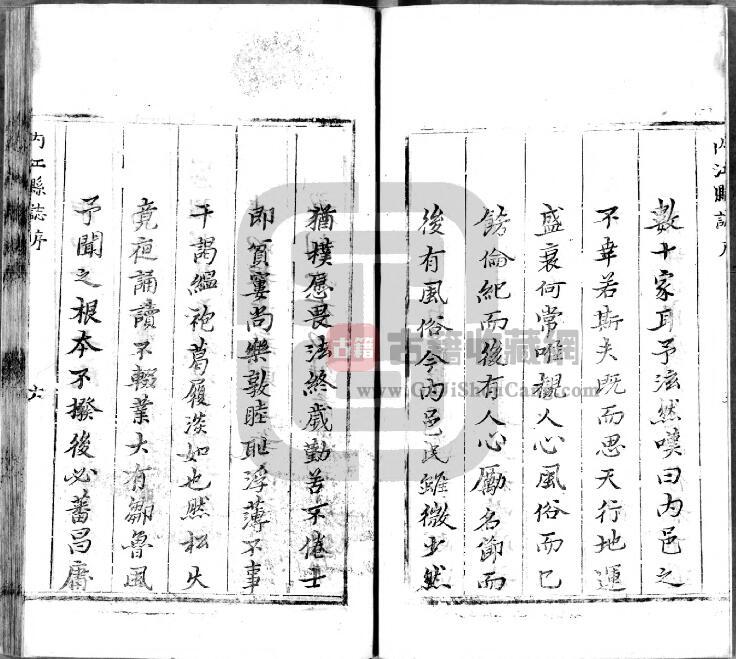 內江縣誌
數十家耳予泫然嘆曰內邑之
不幸若斯夫既而思天行地運
盛衰何常唯視人心風俗而已
飭倫紀而後有人心勵名節而
後有風俗今內邑民雖微少然
猶樸愿畏法終歲勤苦不倦士
即貧窶尚樂敦睦恥浮薄不事
干謁縕袍葛履淡如也然松火
竟夜誦讀不輟業大有鄒魯風
予聞之根本不撥後必蕃昌膺
內江縣誌序 六
古籍
古籍收藏網
www.GuJiShouCang.com